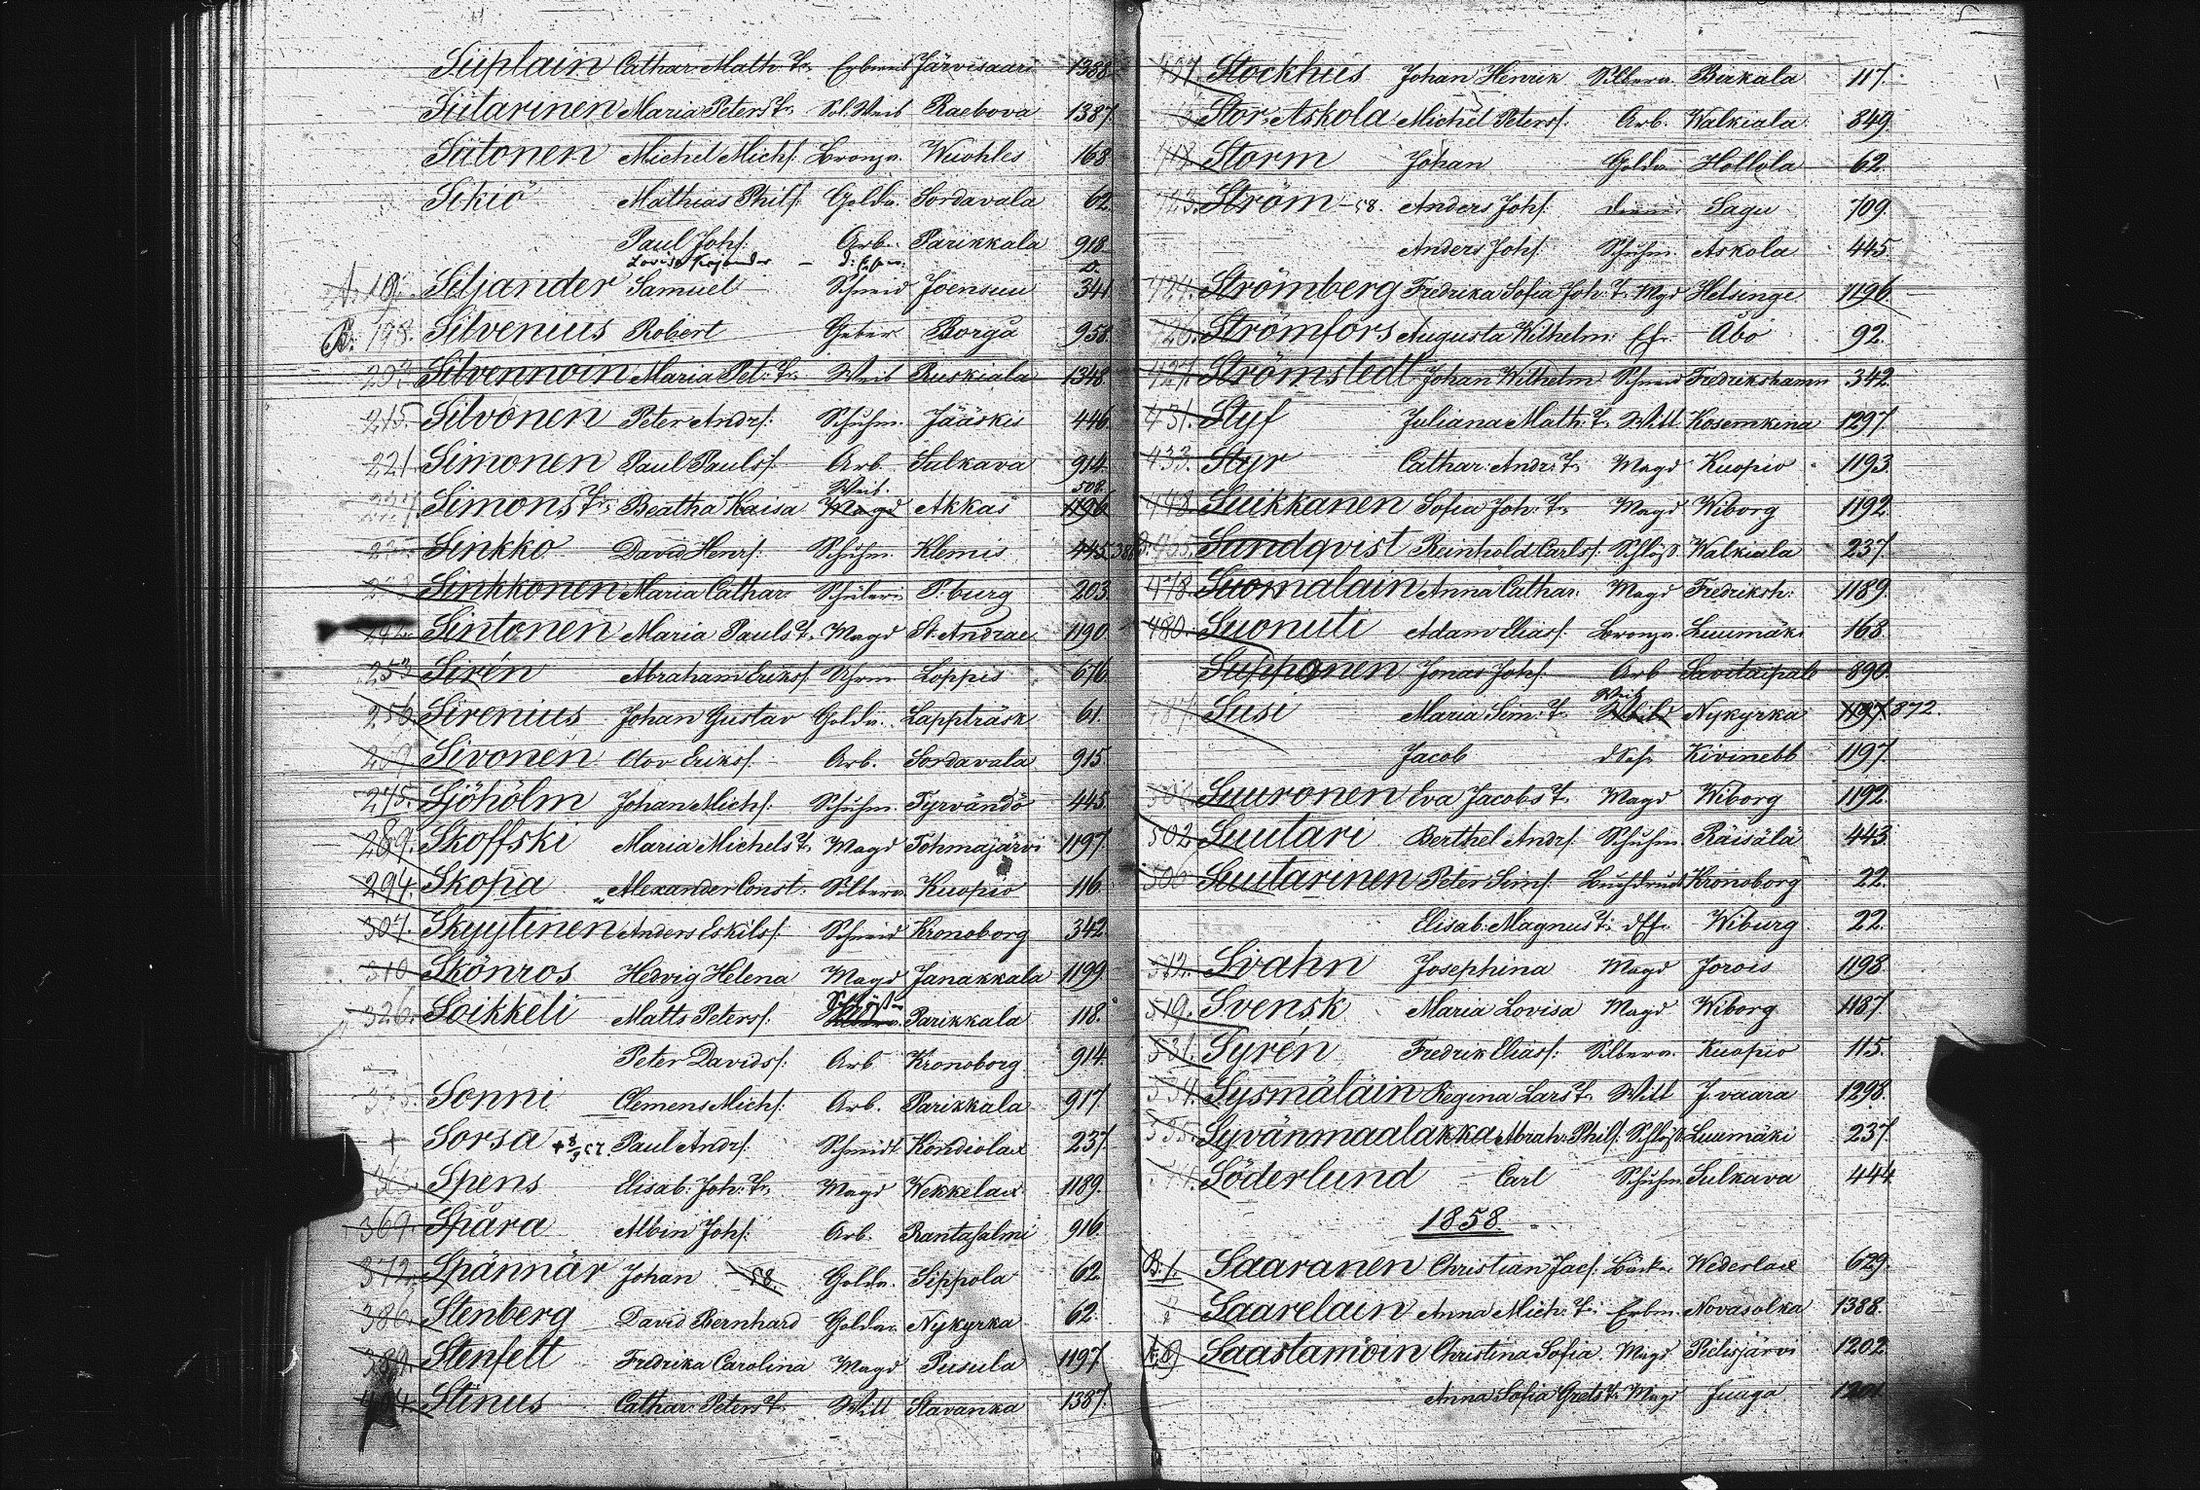 Siiplain Cathar. Math. Tr. Järvisaari 1388.
Siitarinen Maria Peters Tr. Sol. Weib Raebova 1387.
Siitonen Michel Michs. Bronza. Wuohles 168
Sikiö Mathias Phils. Golda. Sordavala 62.
Paul Johs. Arb. Parikkala 918
A. 19. Siljander Samuel Schmid Joensuu 341
B. 198. Silvenius Robert Borgå 958.
203 Silvennoin Maria Pet. Tr. Weib Ruskiala 1348.
215. Silvonen Peter Andrs. Schuhm. Jääskis 446
221 Simonen Paul Pauls. Arb. Sulkava 914.
Weib. 508.
Simons Tr. Beatha Kaisa Magd Akkas 1196
Sinkko David Henrs. Schuhm. Klemis 445
Sinkkonen Maria Cathar. Schüler P.burg 203
242. Sintonen Maria Pauls T. Magd St. Andrae 1190
253 Sirén Abraham Eriks. Loppis 676
256 Sirenius Johan Gustav Golda. Lappträsk 61.
269. Sivonen Eriks. Arb. Sordavala 915
275. Sjöholm Johan Michs. Schuhm. Tyrvändö 445
289. Skoffski Maria Michels T. Magd Tohmajärvi 1197.
294. Skopa Alexander Const. Silbera. Kuopio 116
307. Skyytinen Anders Eskils. Schmid Kronoborg 342
310 Skönros Hedvig Helena Magd Janakkala 1199
326. Soikkeli Matts Peters. Parikkala 118.
Peter Davids. Arb Kronoborg 914.
Sonni Clemens Michs. Arb. Parikkala 917
+ Sorsa Paul Andrs. Schmidt Kondiolax 237.
Spens Elisab. Joh. Tr. Magd Wekkelax 1189.
369. Spåra Albin Johs. Arb. Rantasalmi 916.
372. Spännär Johan 58. Golda. Sippola 62
386. Stenberg David Bernhard Golda. Nykyrka 62.
389. Stenfelt Fredrika Carolina Magd Pusula 1197.
Stinus Cathar. Peters T. Witt Slavanka 1387.
407. Stockhus Johan Henrik Silbera. Birkala 117.
Stor-Askola Michel Peters. Arb. Walkiala 849
418. Storm Johan Golda Hollola 62
423. Ström -58. Anders Johs. Sagu 709
Anders Johs. Schuhm. Askola 445.
424. Strömberg Fredrika Sofia Joh. T. Magd Helsinge 1196
426. Strömfors Augusta Wilhelm. Ef. Åbo 92.
427. Strömstedt Johan Wilhelm Schmid Fredrikshamn 342.
431. Styf Juliana Math. T. Witt Kosemkina 1297.
433. Styr Cathar. Andr. T. Magd Kuopio 1193
448. Suikkanen Sofia Joh. T. Magd Wiborg 1192
Sundqvist Reinhold Carls. Schlöß. Walkiala 237.
478. Suomalain Anna Cathar. Magd Fredriksh. 1189
480. Suonuti Adam Elias. Bronza. Luumäki 168
Supponen Jonas Johs. Arb Savitaipale 890.
487. Susi Maria Sim. T. Weib Nykyrka 1197. 872.
Jacob Kivinebb 1197
Suuronen Eva Jacobs T. Magd Wiborg 1192.
502 Suutari Berthel Andrs. Schuhm. Räisälä 443.
506 Suutarinen Peter Sims. Buchdruck Kronoborg 22.
Elisab. Magnus T. Wiburg 22.
512. Svahn Josephina Magd Jorois 1198
519. Svensk Maria Lovisa Magd Wiborg 1187.
531. Syrén Fredrik Elias. Silbera. Kuopio 115.
534. Sysmäläin Regina Lars T. Witt J.vaara 1298.
535. Syvänmaalakka Abrah. Phils. Schlöß. Luumäki 237.
Söderlund Carl Schuhm. Sulkava 444
1858.
B. 1. Saaranen Christian Jacs. Bäcker Wederlax 629.
2 Saarelain Anna Mich. T. Erbm. Novasolka 1388.
Saastamoin Christina Sofia Magd Pielisjärvi 1202
Anna Sofia Grets T. Magd Juuga 1201